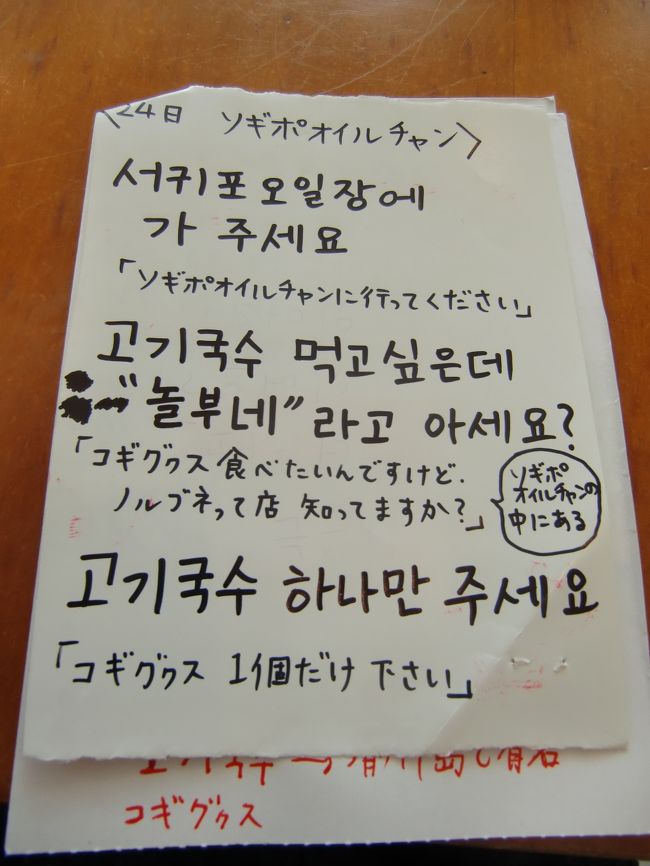 24日 ソギポオイルチャン〉
서귀포오일장에
가 주세요
「ソギポオイルチャンに行ってください」
고기국수 먹고싶은데
"놀부네"라고 아세요?
「コギグゥス 食べたいんですけど.
ノルブネって店 知ってますか?」
ソギポ
オイルチャンの
中にある
고기국수 하나만 주세요
「コギグゥス 1個だけ 下さい」
고기국수
コギグゥス